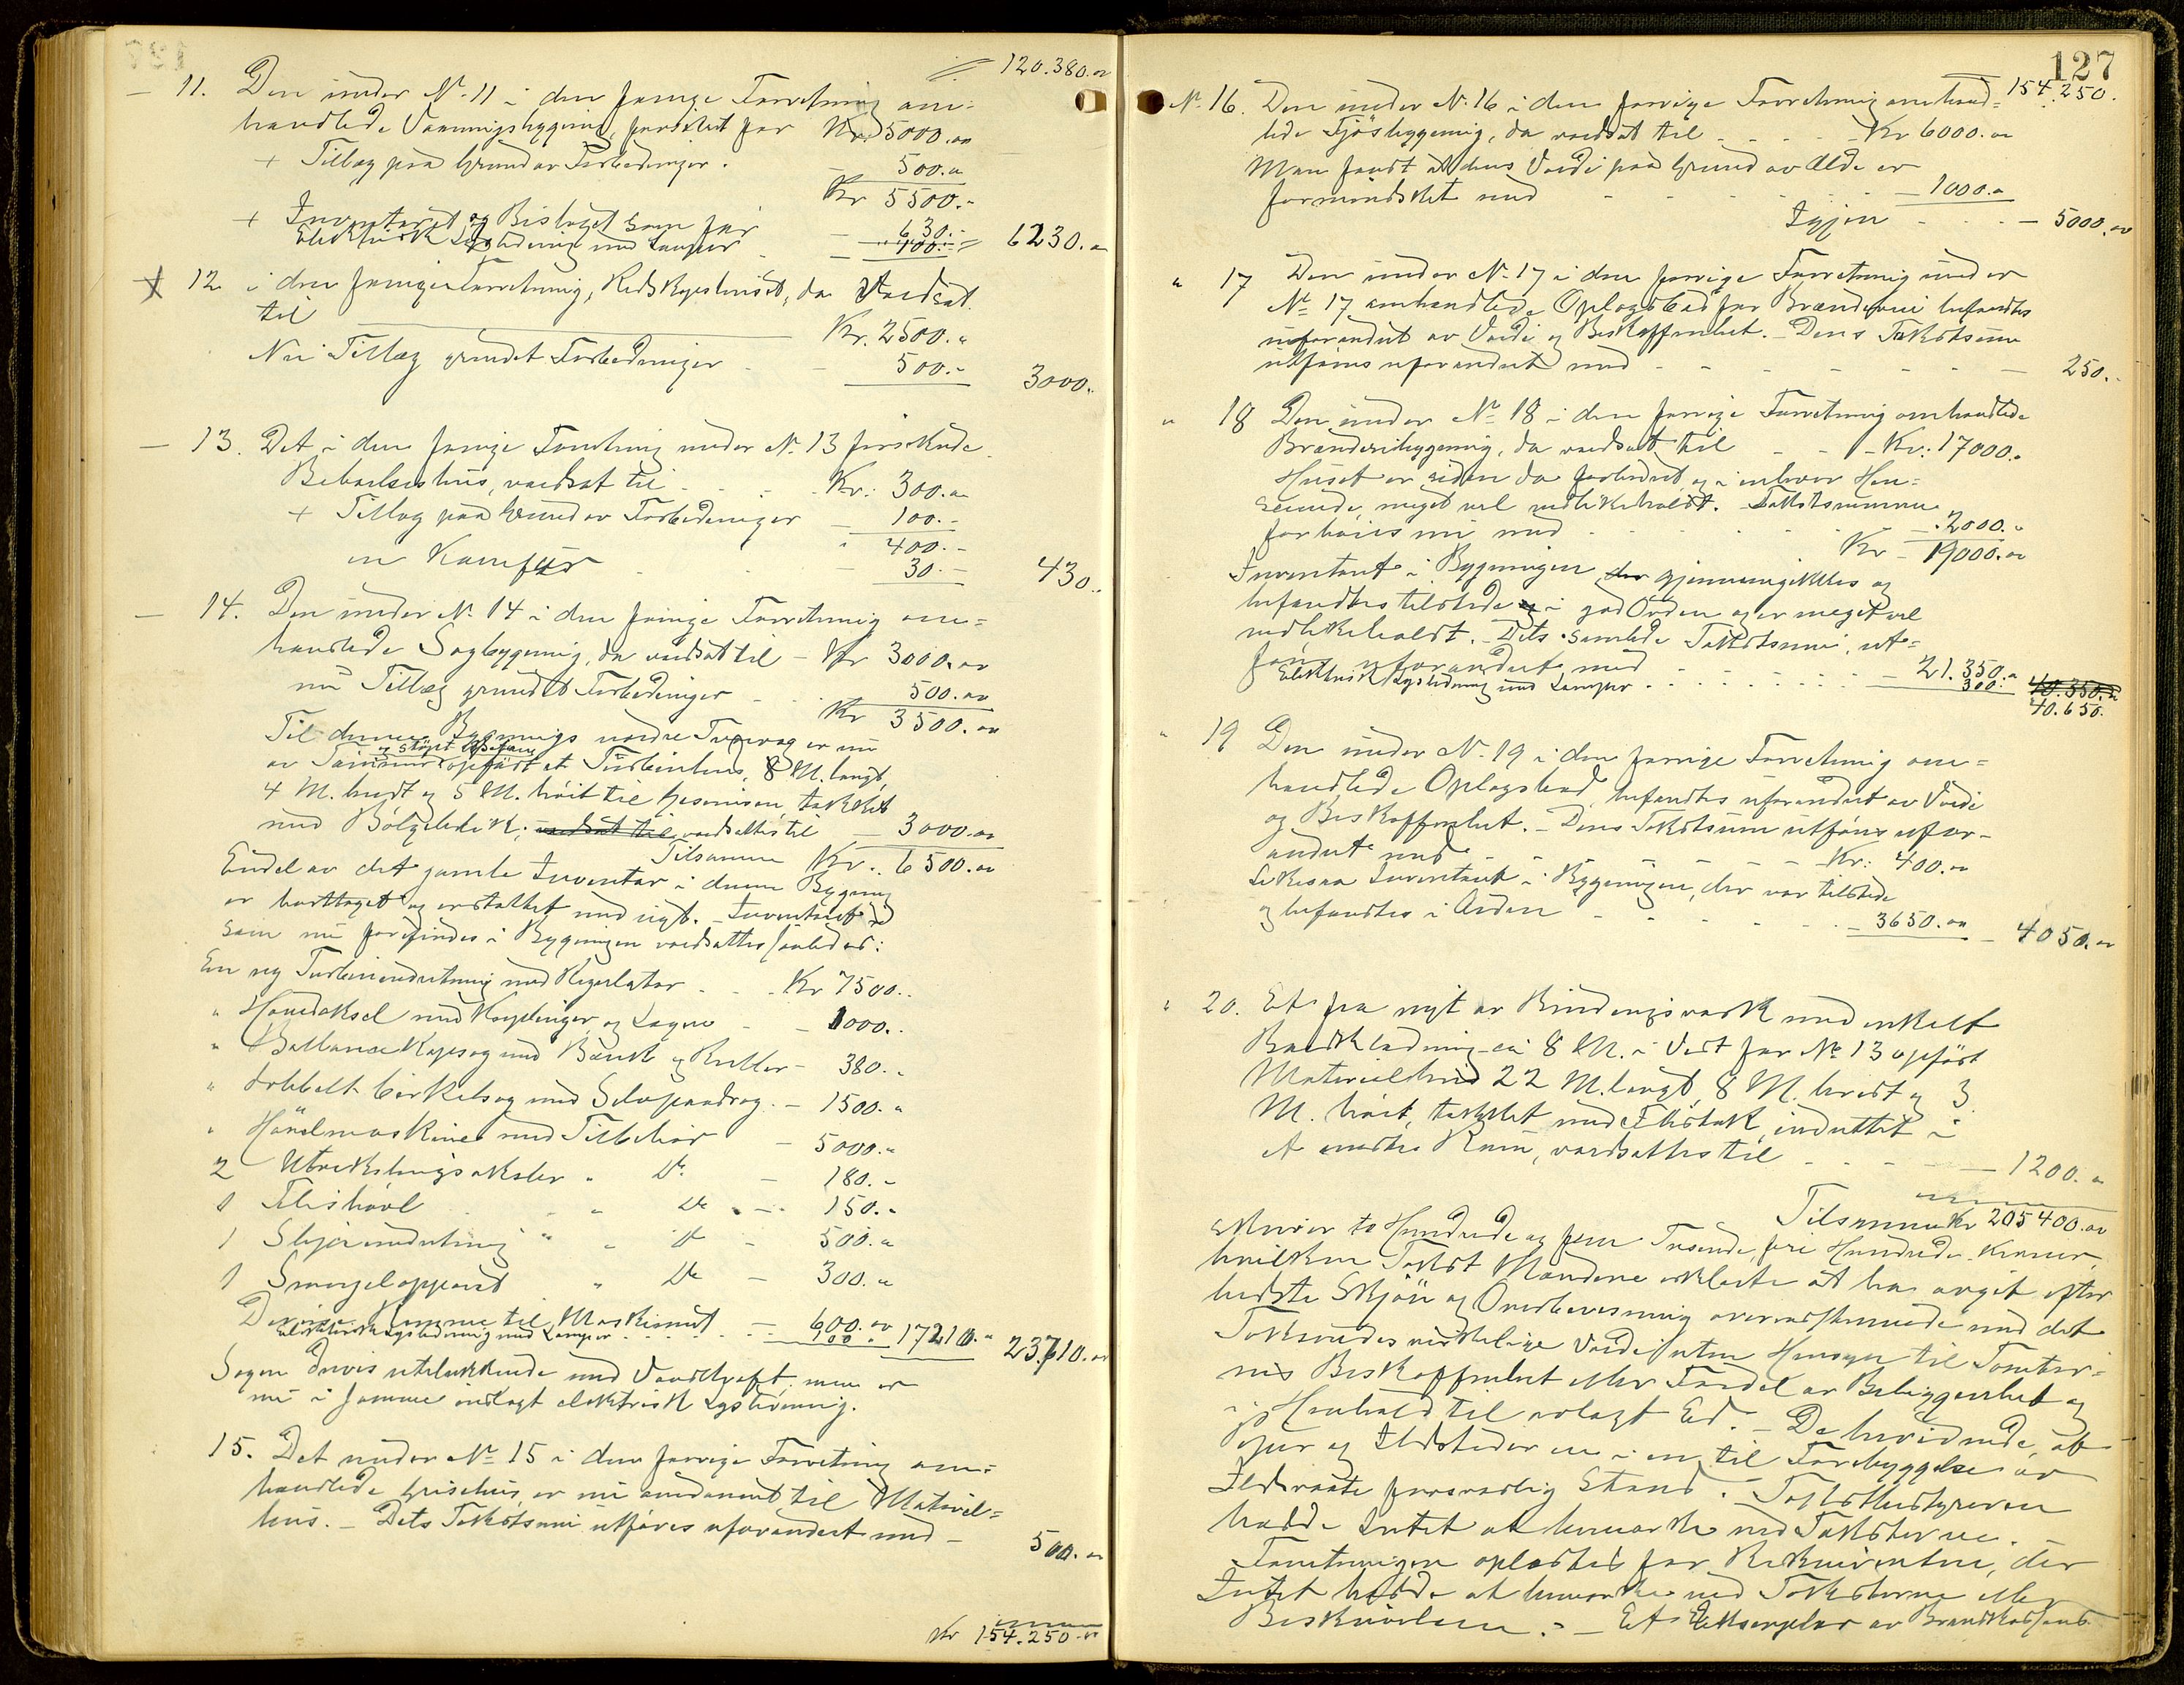 120.380.00
— 11. Den under No 11 i den forrige Forretning om=
handlede Vaaningsbygning, forsikret for Kr. 5000.00
+ Tillæg paa Grund av Forbedringer. 500.00
Kr 5500.-
+ Inventaret og Bislaget som før — 630.-
Elektrisk Lysledning med Lamper — 100.- = 6230.00
12 i den forrige Forretning, Redskapshuset, da værdsat
til Kr. 2500.-
Nu Tillæg grundet Forbedringer - 500.- 3000.-
— 13. Det i den forrige Forretning under No 13 forsikrede
Beboelseshus, værdsat til - - Kr: 300.00
+ Tillæg paa Grund av Forbedringer — 100.-
400.-
en Komfur — 30.- 430.-
— 14. Den under No 14 i den forrige Forretning om=
handlede Sagbygning, da værdsat til - Kr 3000.00
nu Tillæg grundet Forbedringer - 500.00
Kr 3500.00
Til denne Bygnings nordre Tverveg er nu
og støpt
av Tømmer opført et Turbinhus, 8 M. langt,
4 M. bredt og 5 M. høit til Gesimsen, tækket
med Bølgeblik; værdsat til værdsættes til — 3000.00
Tilsammen Kr. 6500.00
Endel av det gamle Inventar i denne Bygning
er borttaget og erstattet med nyt. - Inventaret
som nu forefindes i Bygningen værdsættes saaledes:
En ny Turbinindretning med Regulator - - Kr 7500.-
" Hovedaksel med Koplinger og Lagre - - 1000.-
" Ballance Kapsag med Bænk og Ruller - 380.-
" dobbelt Cirkelsag med Selvpaadrag. - 1500.-
" Høvelmaskine med Tilbehør - 5000.-
2 Utvekslingsaksler " Do — 180.-
1 Flishøvl " Do - - 150.-
1 Slipeindretning " " Do - 500.-
1 Smergelapparat " Do — 300.-
Diverse Remme til Maskineriet — 600.00
Elektrisk Lysledning med Lamper 100 17210.- 23710.00
Sagen drives utelukkende med Vandkraft; men er
nu i samme indlagt elektrisk Lysledning.
15. Det under No 15 i den forrige Forretning om=
handlede Grisehus er nu omdannet til Materiel=
hus. - Dets Takstsum utføres uforandret med - 500.00
Kr 154.250.00
127
154.250.
No 16. Den under No 16 i den forrige Forretning omhand=
lede Fjøsbygning, da værdsat til - - - Kr 6000.00
Man fandt at dens Værdi paa Grund av Ælde er
formindsket med - - - — 1000.-
Igjen - - - — 5000.00
" 17 Den under No 17 i den forrige Forretning under
No 17 omhandlede Oplagsbod for Brænderiet befandtes
uforandret av Værdi og Beskaffenhet. - Dens Takstsum
utføres uforandret med - - - - - - 250.-
" 18 Den under No 18 i den forrige Forretning omhandlede
Brænderibygning, da værdsat til - - - Kr: 17000.-
Huset er siden da forbedret og i enhver Hen=
seende meget vel vedlikeholdt. Takstsummen
forhøies nu med - - - — 2000.-
Kr - 19000.00
Inventaret i Bygningen der gjennemgikkes og
befandtes tilstede og i god Orden og er meget vel
vedlikeholdt. - Dets samlede Takstsum, ut=
føres uforandret med - - - — 21.350.-
Elektrisk Lysledning med Lamper - - - 300. 40.350.-
40.650.
" 19 Den under No 19 i den forrige Forretning om=
handlede Oplagsbod befandtes uforandret av Værdi
og Beskaffenhet. - Dens Takstsum utføres ufor-
andret med - - - - - Kr: 400.00
Likesaa Inventaret i Bygningen, der var tilstede
og befandtes i Orden - - - - 3650.00 — 4050.00
" 20. Et fra nyt av Bindingsverk med enkelt
Bordklædning ca 8 M. i Vest for No 13 opført
Materielhus 22 M. langt, 8 M. bredt og 3
M. høit, tækket med Flistak, inddelt i
et Rum, værdsættes til - - - — 1200.-
Tilsammen Kr 205400.00
skriver to Hundrede og fem Tusende, fire Hundrede Kroner,
hvilken Takst Mændene erklærte at ha avgit efter
bedste Skjøn og Overbevisning overensstemmende med det
Takseredes virkelige Værdi uten Hensyn til Tomter=
nes Beskaffenhet eller Fordel av Beliggenhet og
i Henhold til avlagt Ed. - De bevidnede, at
Piper og Ildsteder er i en til Forebyggelse av
Ildsvaade forsvarlig Stand. - Takstbestyreren
hadde Intet at bemerke ved Taksterne. -
Forretningen oplæstes for Rekvirenten, der
Intet hadde at bemerke ved Taksterne eller
Beskrivelsen. - Et Eksemplar av Brandkassens